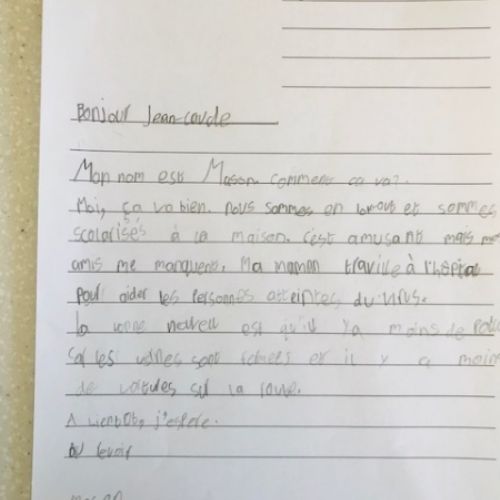 Bonjour Jean-coude
Mon nom est Mason. comment ca va?
Moi, ça va bien. nous sommes en et sommes
scolarisés à la maison. c'est amusant mais mes
amis me manquent. Ma maman traville à l'hôpital
pour aider les personnes atteintes du virus.
la nouvell est qu'il ya moins de
les usines sont et il y a moins
de voitures sur la route.
A bientôt, j'espere.
Au revoir
mason